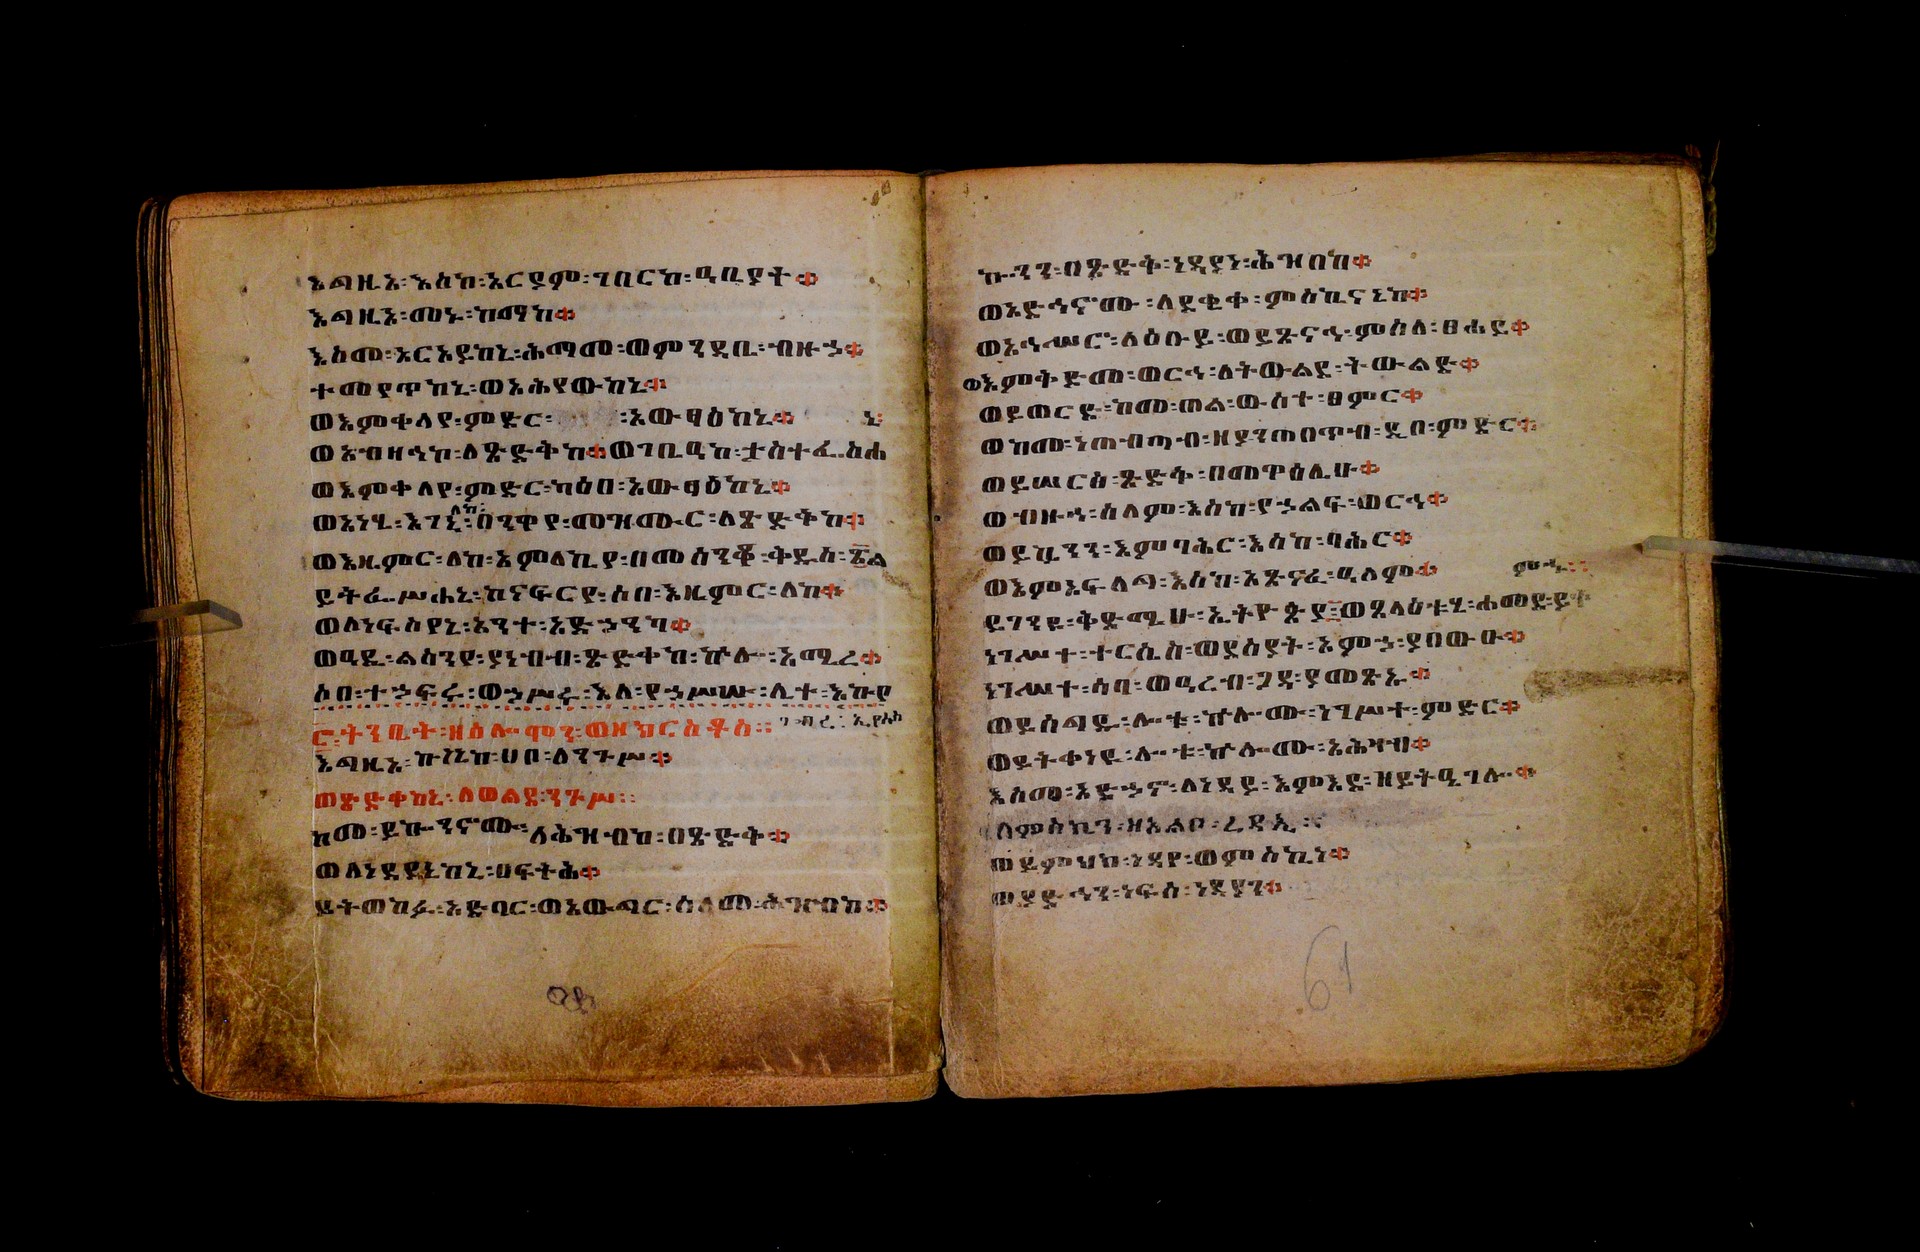 እግዚኦ፡እስከ፡አርያም፡ገበርከ፡ዓቢያተ
እግዚአ፡መኑ፡ከማከ
እስመ፡አርአይከኒ፡ሕማመ፡ወምንዳቤ፡ብዙኃ
ተመየጥከኒ፡ወአሕየውከኒ
ወእምቀላየ፡ምድር፡ ፡አውፃዕከኒ ኒ፡
ወአብዛኅከ፡ለጽድቅከ ወገባዒከ፡ታስተፌስሐ
ወእምቀላየ፡ምድር፡ካዕበ፡አውፃዕከኒ
ወአነሂ፡እገኒ፡ለከ፡በንዋየ፡መዝሙር፡ለጽድቅከ
ወእዜምር፡ለከ፡አምላኪየ፡በመሰንቆ፡ቅዱሰ፡፳ኤል
ይትፌሥሐኒ፡ከናፍርየ፡ሶበ፡እዜምር፡ለከ
ወለነፍስየኒ፡አንተ፡አድኃንካ
ወዓዲ፡ልሳንየ፡ያነብብ፡ጽድቀከ፡ኵሎ፡አሚረ
ሶበ፡ተኃፍሩ፡ወኃሥሩ፡እለ፡የኃሥሡ፡ሊተ፡እኩየ
ር፡ትንቢት፡ዘሰሎሞን፡ወዘክርስቶስ፡፡
እግዚኦ፡ኵነኔከ፡ሀቦ፡ለንጉሥ
ወጽድቀከኒ፡ለወልደ፡ንጉሥ፡፡
ከመ፡ይኰንኖሙ፡ለሕዝብከ፡በጽድቅ
ወለነዳያኒከኒ፡በፍትሕ
ይትወከፉ፡አድባር፡ወአውግር፡ሰላመ፡ሕዝብከ
ኰንን፡በጽድቅ፡ነዳያነ፡ሕዝብከ
ወአድኅኖሙ፡ለደቂቀ፡ምስኪናኒከ
ወአኅሥሮ፡ለዕቡይ፡ወይጽናኅ፡ምስለ፡ፀሐይ
ወእምቅድመ፡ወርኅ፡ለትውልደ፡ትውልድ
ወይወርድ፡ከመ፡ጠል፡ውስተ፡ፀምር
ወከመ፡ነጠብጣብ፡ዘያንጠበጥብ፡ዲበ፡ምድር
ወይሠርፅ፡ጽድቅ፡በመዋዕሊሁ
ወብዙኅ፡ሰላም፡እስከ፡የኃልፍ፡ወርኅ
ወይኴንን፡እምባሕር፡እስከ፡ባሕር
ወእምአፍላግ፡እስከ፡አጽናፈ፡ዓለም
ይገንዩ፡ቅድሜሁ፡ኢትዮጵያ፡ወጸላዕቱሂ፡ሐመድ፡ይቅ
ነገሥተ፡ተርሴስ፡ወደሰያት፡አምኃ፡ያበውኡ
ነገሥተ፡ሳባ፡ወዓረብ፡ጋዳ፡ያመጽኡ
ወይሰግዱ፡ሎቱ፡ኵሎሙ፡ነገሥተ፡ምድር
ወይትቀነዩ፡ሎቱ፡ኵሎሙ፡አሕዛብ
እስመ፡አድኃኖ፡ለነዳይ፡እምእደ፡ዘይትዔገሎ
ለምስኪን፡ዘአልቦ፡ረዳኢ፡፡
ወይምህክ፡ነዳየ፡ወምስኪነ
ወያድኅን፡ነፍሰ፡ነዳያን
61